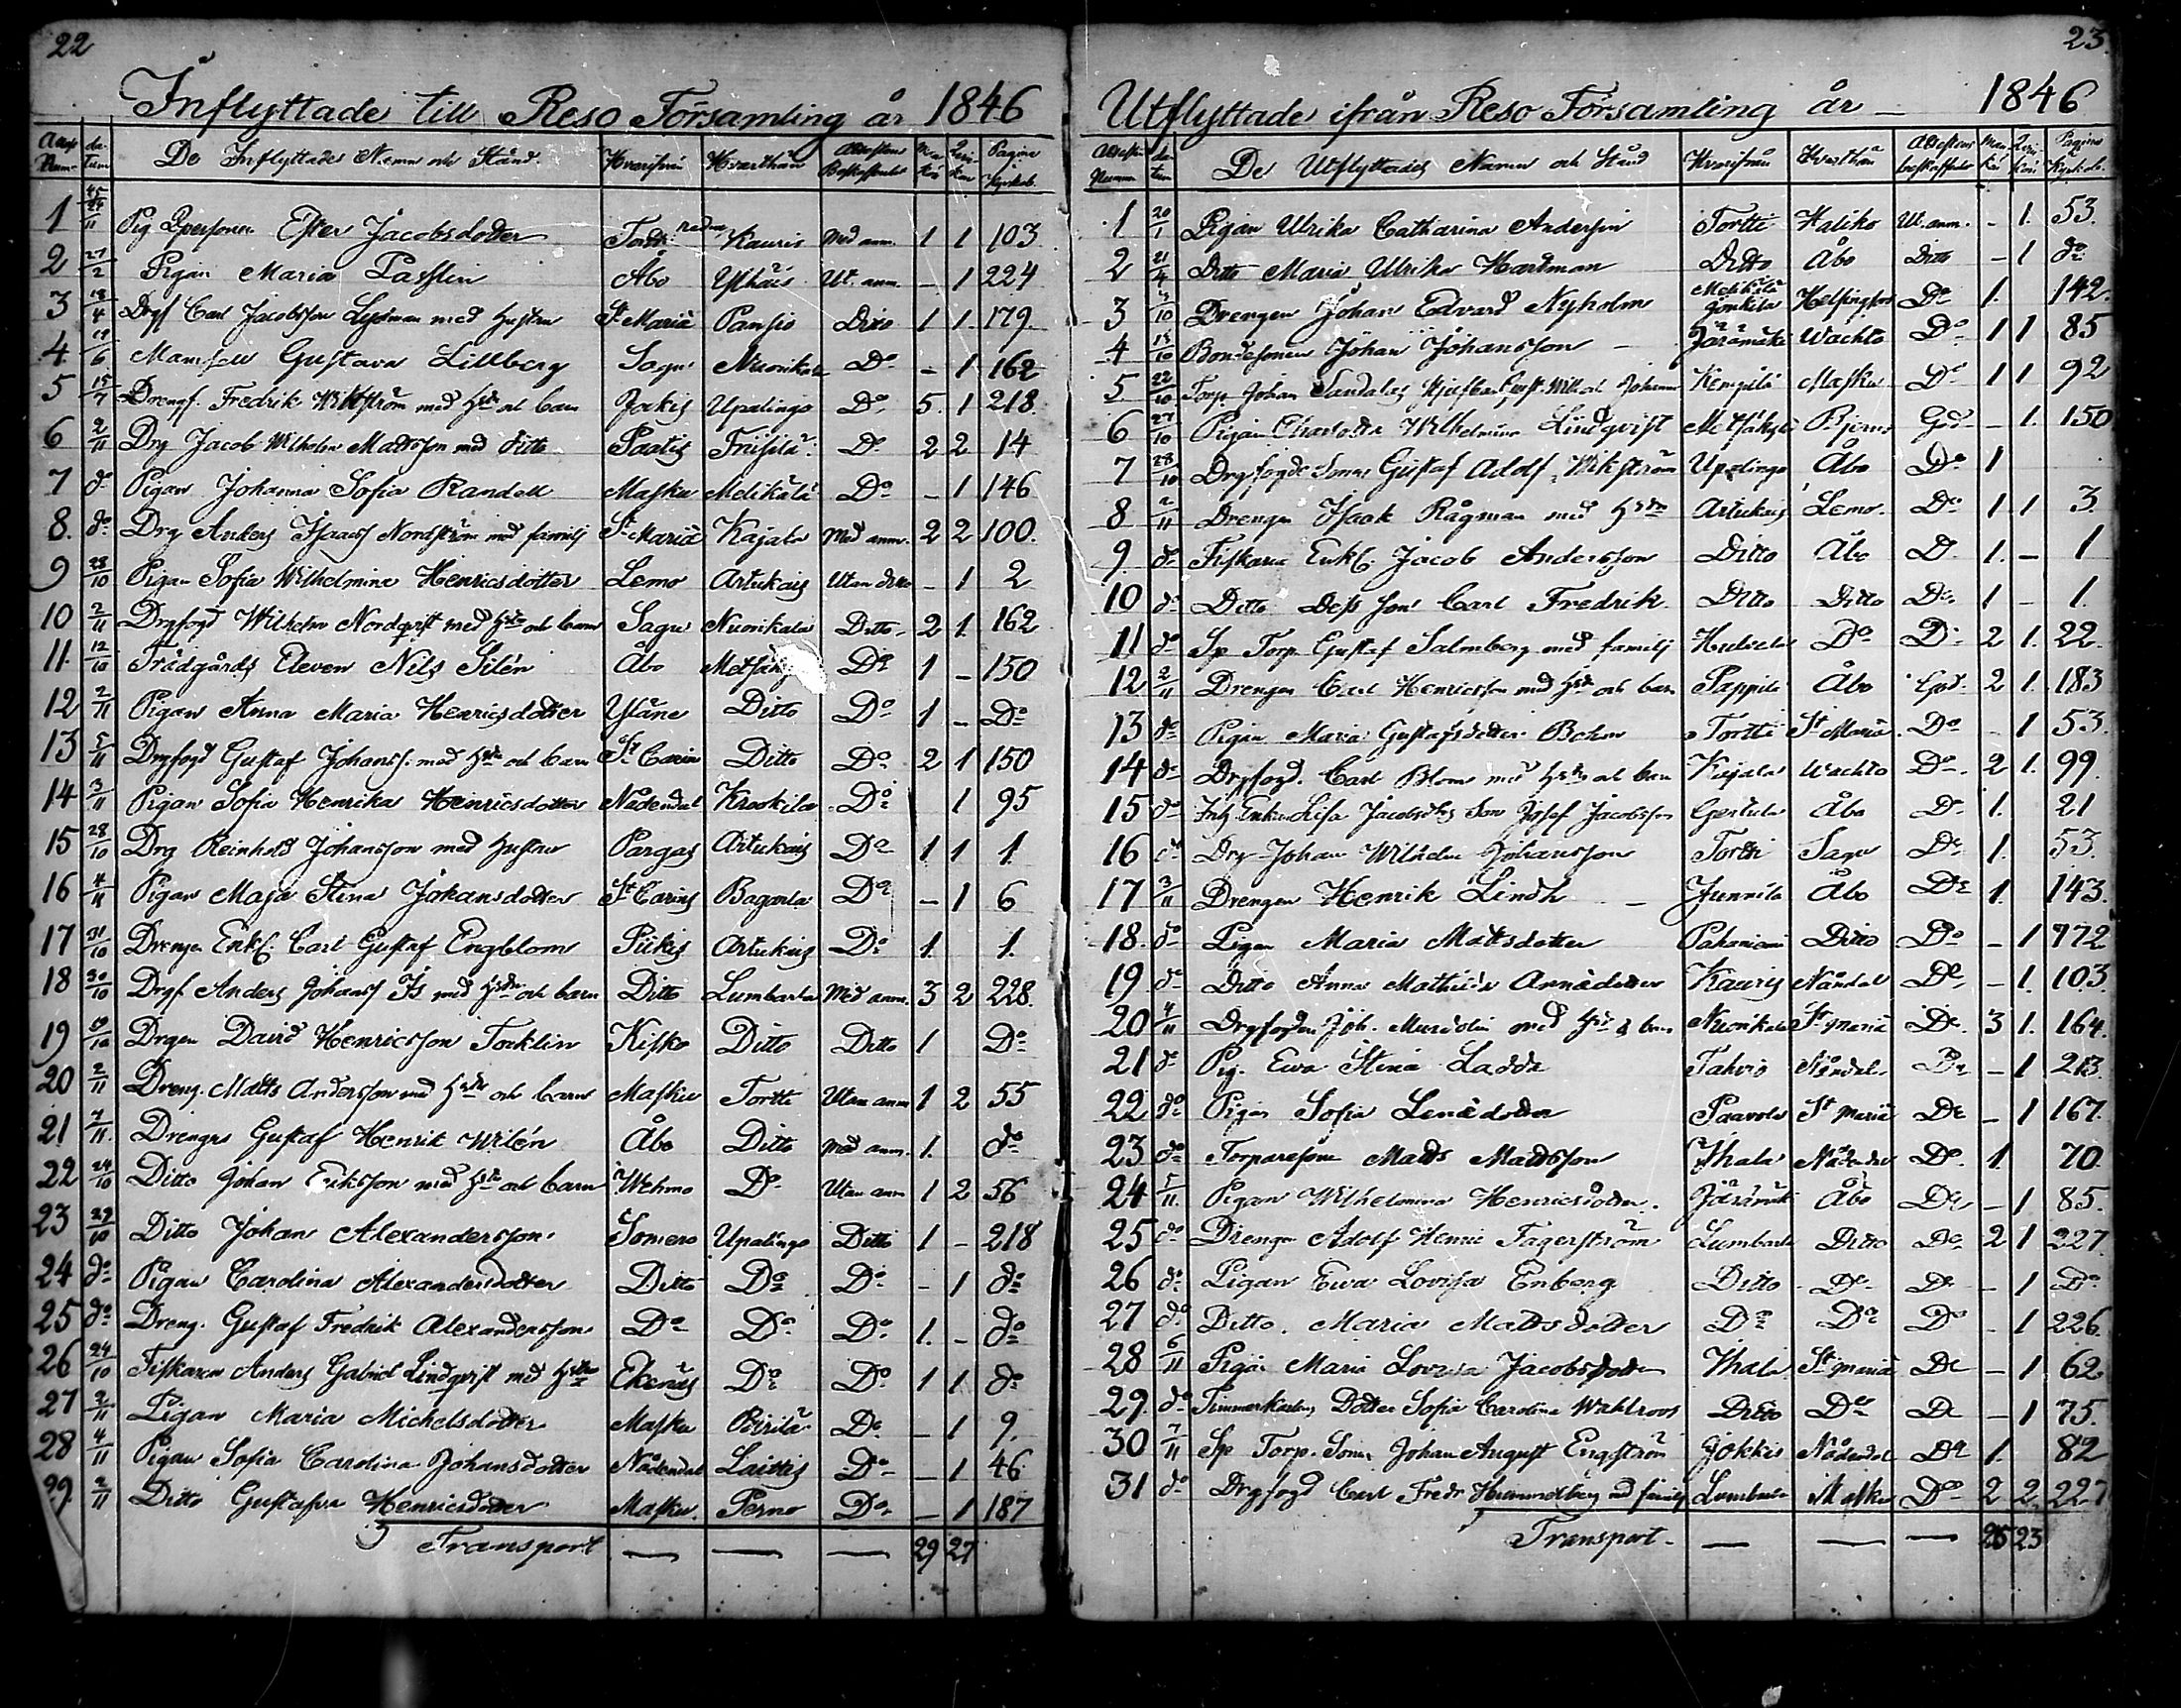 22
Inflyttade till Reso Församling år 1846
De Inflyttades Namn och Stånd Hvarifrån Hvarthän Attestens Beskaffenhet Man kön Qvin kön Pagina Kyrkob.
1 Ester Jacobsdotter Kauris Med anm. 1 1 103
2 27/2 Pigan Maria Passlin Åbo Ut. anm. - 1 224
3 18/4 Drgs Carl Jacobsson Lydman med hustru St Mariæ Pansio Ditto 1 1 179
4 17/6 Mamsell Gustava Lillberg Sagu Nuorikala Do - 1 162
5 15/7 Drengs. Fredrik Wikström med hstr och barn Jockis Upalingo Do 5. 1 218
6 2/11 Drg Jacob Wilhelm Mattsson med ditto Pootis Friisilä Do 2 2 14
7 do Pigan Johanna Sofia Randell Masku Melikälä Do - 1 146
8. do Drg Anders Isaacs Nordström med familj St Mariæ Kajala Med anm. 2 2 100.
9 28/10 Pigan Sofia Wilhelmina Henricsdotter Lemo Artukais Utan ditto - 1 2
10 2/11 Drgfogd Wilhelm Nordqvist med hstr och barn Sagu Nuorikala Ditto 2 1 162
11. 12/10 Trädgårds Eleven Nils Silén Åbo Do 1 - 150
12 2/11 Pigan Anna Maria Henricsdotter Yläne Ditto Do 1 - Do
13 5/11 Drgfogd Gustaf Johanss. med hstr och barn St Carins Ditto Do 2 1 150
14 3/11 Pigan Sofia Henrika Henricsdotter Nådendal Krookila Do 1 95
15 28/10 Drg Reinhold Johansson med hustru Pargas Artukais Do 1 1 1
16 4/11 Pigan Maja Stina Johansdotter St Carins Bagarla Do - 1 6
17 31/10 Drengen Enkl. Carl Gustaf Engblom Piikis Artukais Do 1. 1.
18 30/10 Drgf Anders Johanss Is med hstr och barn Ditto Lumbarla Med anm. 3 2 228.
19 Drgen David Henricsson Torklin Kisko Ditto Ditto 1 Do
20 2/11 Dreng. Matts Andersson med hstr och barn Masku Tortti Utan anm 1 2 55
21 7/11. Drengen Gustaf Henrik Wilén Åbo Ditto Med anm. 1. do
22 24/10 Ditto Johan Eriksson med hstr och barn Wehmo Do Utan anm 1 2 56
23 29/10 Ditto Johan Alexandersson Somero Upalingo Ditto 1 - 218
24 do Pigan Carolina Alexandersdotter Ditto Do Do - 1 do
25 do Dreng. Gustaf Fredrik Alexandersson Do Do Do 1. - do
26 24/10 Fiskaren Anders Gabriel Lindqvist med hstr Ekenäs Do Do 1 1 do
27 2/11 Pigan Maria Michelsdotter Masku Pirilä Do - 1 9.
28 4/11 Pigan Sofia Carolina Johansdotter Nådendal Laittis Do - 1 46
29. 2/11 Ditto Gustafva Henricsdotter Masku. Perno Do - 1 187
Transport — — — 29 27
23.
Utflyttade ifrån Reso Församling år — 1846
De Utflyttades Namn och Stånd Hvarifrån Hvarthän Attestens beskaffenhet Man kön Qvin kön Pagina Kyrkob.
1 20/1 Pigan Ulrika Catharina Andersin Tortti Haliko Ut. anm. - 1. 53.
2 21/4 Ditto Maria Ulrika Hartman Ditto Åbo Ditto - 1 do
3 Drengen Johan Edvard Nyholm Helsingfors Do 1. 142.
4 13/10 Bondesonen Johan Johansson — Järämäki Wächto Do 1 1 85
5 22/10 Torp. Johan Kempilä Masku Do 1 1 92
6 27/10 Pigan Charlotta Wilhelmina Lindqvist Metsäkylä Bjerno God - 1. 150
7 28/10 Drgfogde Sonen Gustaf Adolf Wikström Upalingo Åbo Do 1
8 2/11 Drengen Isaak Rågman med hstr Artukais Lemo Do 1 1 3
9 do Fiskaren Enkl. Jacob Andersson Ditto Åbo Do 1. - 1
10 do Ditto Dess son Carl Fredrik Ditto Ditto Do 1 - 1.
11 do Sp Torp. Gustaf Salmberg med familj Do Do 2 1. 22.
12 2/11 Drengen Carl Henricsson med hstr och barn Pappila Åbo God. 2 1. 183
13 do Pigan Maria Gustafsdotter Bohm Tortti St Mariæ Do - 1 53.
14 do Drgfogd. Carl Blom med hstr och barn Kajala Wächto Do 2 1. 99.
15 do Inh Enkan Lisa Jacobsdrs Son Josef Jacobsson Åbo Do 1. 21
16 do Drg Johan Wilhelm Johansson Tortti Sagu Do 1. 53.
17 3/11 Drengen Henrik Lindh — Junnila Åbo Do 1. 143.
18. do Pigan Maria Mattsdotter Pahaniemi Ditto Do - 1 172
19 do Ditto Anna Mathilda Kauris Nådendal Do - 1. 103.
20 4/11 Drgfogden Joh. med hstr & barn Nuorikala St Mariæ Do. 3 1. 164.
21 do Pig. Ewa Stina Ladda Tahvio Nådendal Do - 1 213.
22 do Pigan Sofia Lenædotter Paavola St Mariæ Do - 1 167.
23 do Torparesonen Matts Mattsson Ihala Nådendal Do. 1 70.
24 5/11. Pigan Wilhelmina Henricsdotter Järämäki Åbo Do - 1 85.
25 do Drengen Adolf Henric Fagerström Lumbarla Ditto Do 2 1 227.
26 do Pigan Ewa Lovisa Enberg Ditto Do Do - 1 Do
27 do Ditto. Maria Mattsdotter Do Do Do - 1 226.
28 6/11 Pigan Maria Lovisa Jacobsdotter Ihala St Mariæ Do - 1 62
29. do Timmerkarlens Dotter Sofia Carolina Wahlroos Ditto Do Do - 1 75.
30 7/11 Sp Torp. Sonen Johan August Engström Jokkis Nådendal Do 1. 82
31 do Drgfogd Carl Fredr Hummelberg med familj Lumbarla Masku Do 2 2 227
Transport — — — 25 23